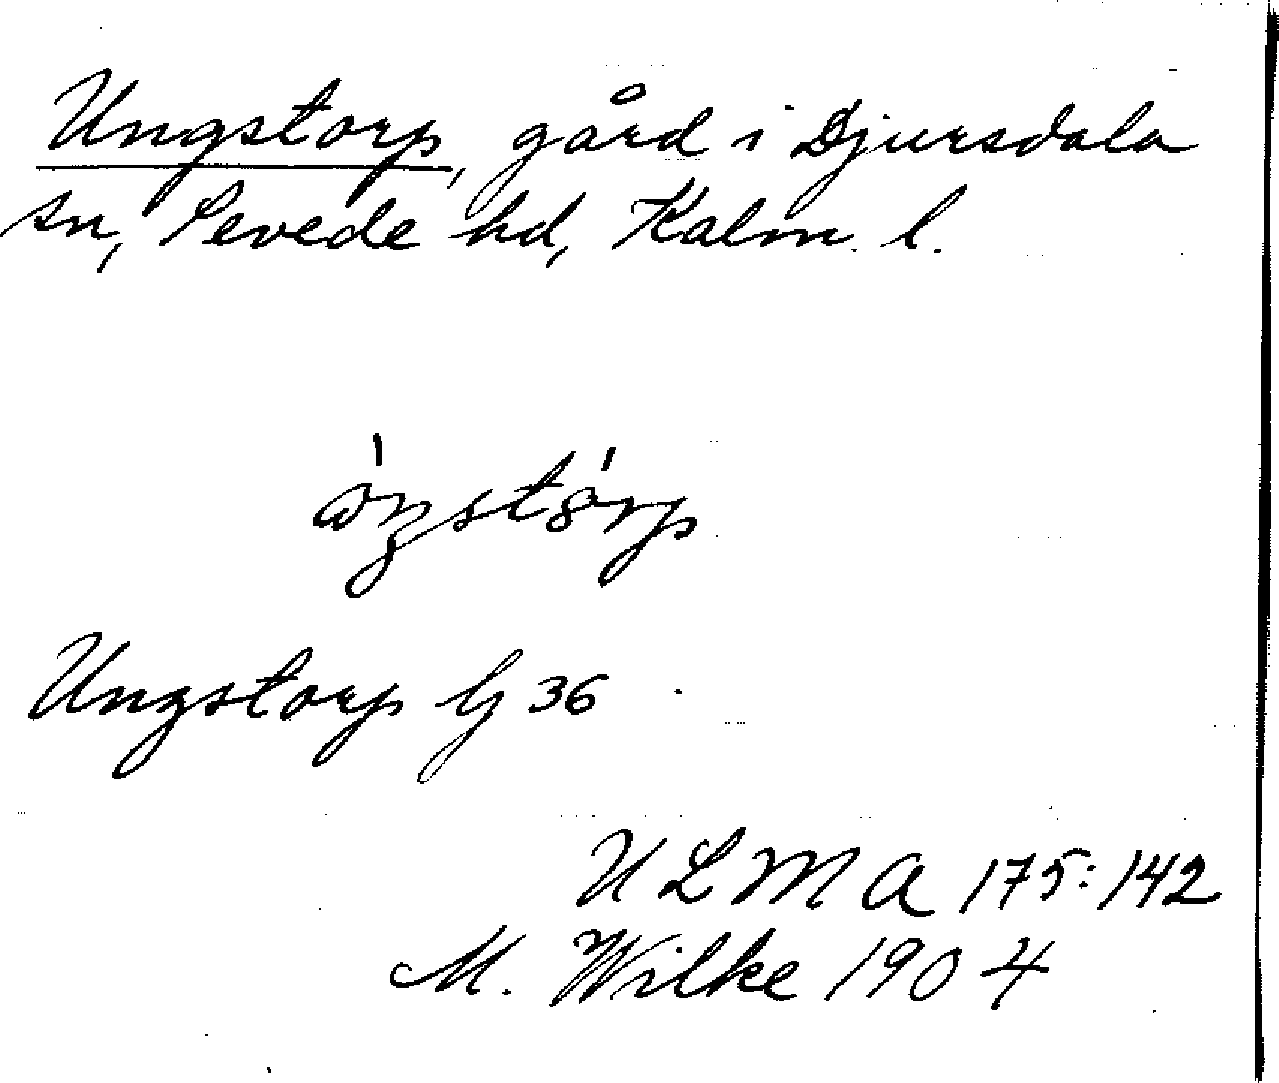 Ungstorp, gård i Djursdala
sn, Sevede hd, Kalm. l.
Ungstorp G 36
ULMA 175:142
M. Wilke 1904